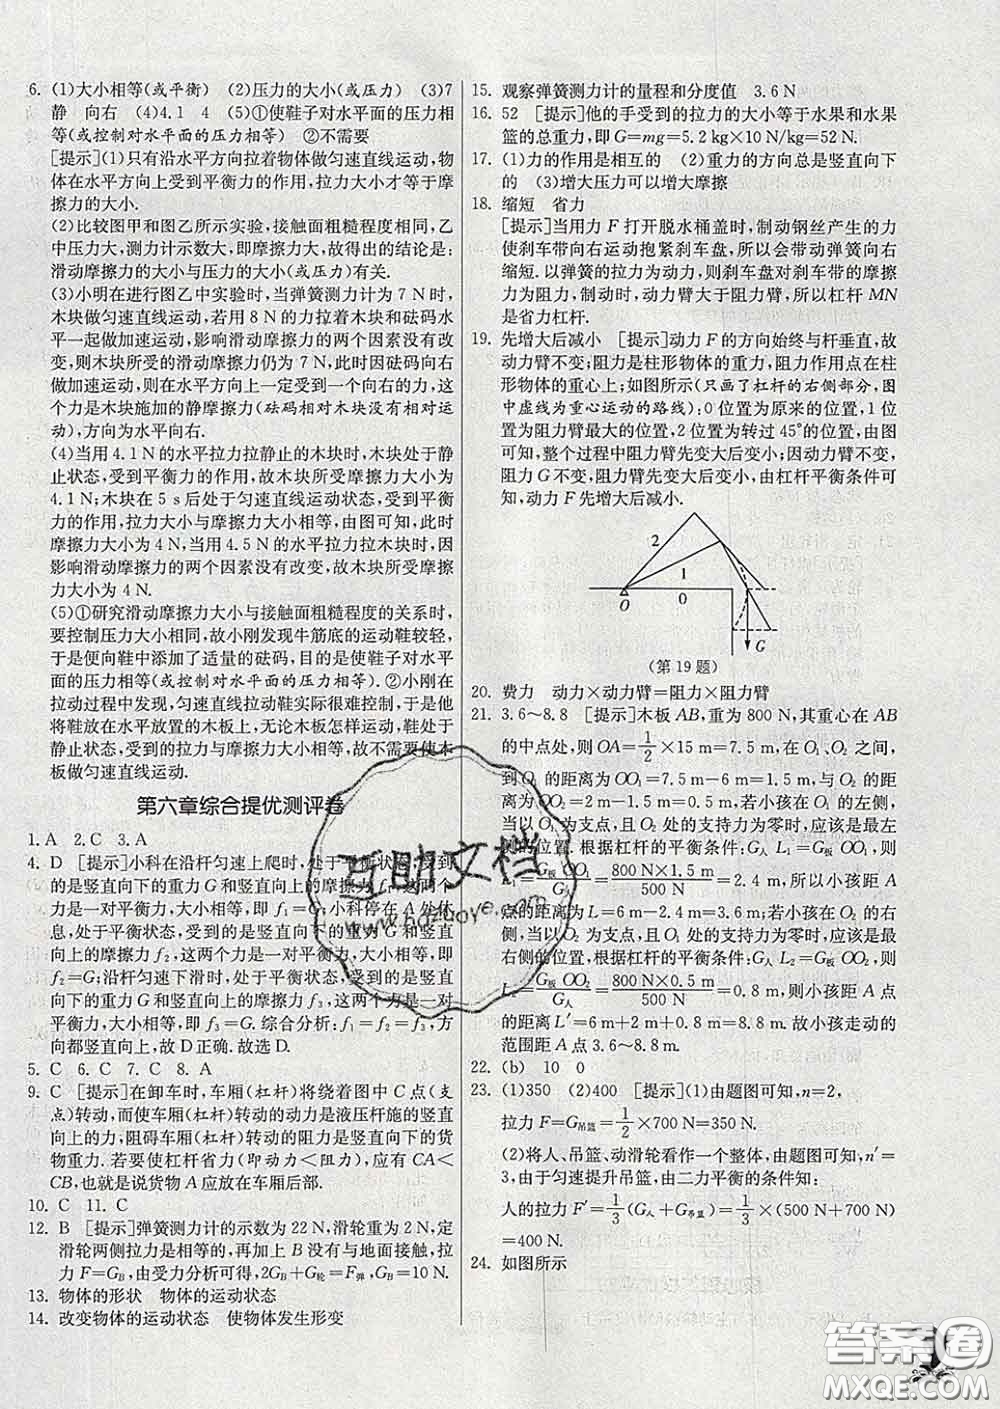 6. (1)大小相等(或平衡)　(2)压力的大小(或压力)　(3)7
静　向右　(4)4.1　4　(5)①使鞋子对水平面的压力相
等(或控制对水平面的压力相等)　②不需要
[提示](1)只有沿水平方向拉着物体做匀速直线运动,物
体在水平方向上受到平衡力的作用,拉力大小才等于摩
擦力的大小.
(2)比较图甲和图乙所示实验,接触面粗糙程度相同,乙
中压力大,测力计示数大,即摩擦力大,故得出的结论是:
滑动摩擦力的大小与压力的大小(或压力)有关.
(3)小明在进行图乙中实验时,当弹簧测力计为 7 N时,
木块做匀速直线运动,若用 8 N的力拉着木块和砝码水
平向右做加速运动,影响滑动摩擦力的两个因素没有改
变,则木块所受的滑动摩擦力仍为 7 N,此时因砝码向右
做加速运动,则在水平方向上一定受到一个向右的力,这
个力是木块施加的静摩擦力(砝码相对木块没有相对运
动),方向为水平向右.
(4)当用 4.1 N的水平拉力拉静止的木块时,木块处于静
止状态,受到平衡力的作用,故木块所受摩擦力大小为
4.1 N;木块在 5 s后处于匀速直线运动状态,受到平衡
力的作用,拉力大小与摩擦力大小相等,由图可知,此时
摩擦力大小为 4 N,当用 4.5 N的水平拉力拉木块时,因
影响滑动摩擦力的两个因素没有改变,故木块所受摩擦
力大小为 4 N.
(5)①研究滑动摩擦力大小与接触面粗糙程度的关系时,
要控制压力大小相同,故小刚发现牛筋底的运动鞋较轻,
于是便向鞋中添加了适量的砝码,目的是使鞋子对水平
面的压力相等(或控制对水平面的压力相等).②小刚在
拉动过程中发现,匀速直线拉动鞋实际很难控制,于是他
将鞋放在水平放置的木板上,无论木板怎样运动,鞋处于
静止状态,受到的拉力与摩擦力相等,故不需要使木
板做匀速直线运动.
第六章综合提优测评卷
1. A　2. C　3. A
4. D　[提示]小科在沿杆匀速上爬时,处于平衡状态,受到
的是竖直向下的重力 G 和竖直向上的摩擦力 f₁,这两个
力是一对平衡力,大小相等,即 f₁=G;小科停在 A 处休
息,处于平衡状态,受到的是竖直向下的重力 G 和竖直
向上的摩擦力 f₂,这两个力是一对平衡力,大小相等,即
f₂=G;沿杆匀速下滑时,处于平衡状态,受到的是竖直
向下的重力 G 和竖直向上的摩擦力 f₃,这两个力是一对
平衡力,大小相等,即 f₃=G. 综合分析:f₁=f₂=f₃,方
向都竖直向上,故 D 正确. 故选 D.
5. C　6. C　7. C　8. A
9. C　[提示]在卸车时,车厢(杠杆)将绕着图中 C 点(支
点)转动,而使车厢(杠杆)转动的动力是液压杆施的竖直
向上的力,阻碍车厢(杠杆)转动的阻力是竖直向下的货
物重力. 若要使杠杆省力(即动力<阻力),应有 CA<
CB,也就是说货物 A 应放在车厢后部.
10. C　11. C
12. B　[提示]弹簧测力计的示数为 22 N,滑轮重为 2 N,定
滑轮两侧拉力是相等的,再加上 B 没有与地面接触,拉
力 F=G_B,由受力分析可得,2G_B+G轮=F弹,G_B=10 N.
13. 物体的形状　物体的运动状态
14. 改变物体的运动状态　使物体发生形变
15. 观察弹簧测力计的量程和分度值　3.6 N
16. 52　[提示]他的手受到的拉力的大小等于水果和水果
篮的总重力,即 G=mg=5.2 kg×10 N/kg=52 N.
17. (1)力的作用是相互的　(2)重力的方向总是竖直向下
的　(3)增大压力可以增大摩擦
18. 缩短　省力
[提示]当用力 F 打开脱水桶盖时,制动钢丝产生的力
使刹车带向右运动抱紧刹车盘,所以会带动弹簧向右
缩短. 以弹簧的拉力为动力,则刹车盘对刹车带的摩擦
力为阻力,制动时,动力臂大于阻力臂,所以杠杆 MN
是省力杠杆.
19. 先增大后减小　[提示]动力 F 的方向始终与杆垂直,故
动力臂不变;阻力是柱形物体的重力,阻力作用点在柱
形物体的重心上;如图所示(只画了杠杆的右侧部分,图
中虚线为重心运动的路线):0 位置为原来的位置,1 位
置为阻力臂最大的位置,2 位置为转过 45°的位置,由图
可知,整个过程中阻力臂先变大后变小;因动力臂不变,
阻力 G 不变,阻力臂先变大后变小,由杠杆平衡条件可
知,动力 F 先增大后减小.
2
1
O
0
G
(第 19 题)
20. 费力　动力×动力臂=阻力×阻力臂
21. 3.6~8.8　[提示]木板 AB,重为 800 N,其重心在 AB
的中点处,则 OA=1/2×15 m=7.5 m,在 O₁、O₂ 之间,
到 O₁ 的距离为 OO₁=7.5 m-6 m=1.5 m,与 O₂ 的距
离为 OO₂=2 m-1.5 m=0.5 m. 若小孩在 O₁ 的左侧,
当以 O₁ 为支点,且 O₂ 处的支持力为零时,应该是最左
侧的位置. 根据杠杆的平衡条件:G人 L₁=G板 OO₁,则
L₁=G板 OO₁/G人=800 N×1.5 m/500 N=2.4 m,所以小孩距 A
点的距离为 L=6 m-2.4 m=3.6 m;若小孩在 O₂ 的右
侧,当以 O₂ 为支点,且 O₁ 处的支持力为零时,应该是最
右侧的位置,根据杠杆的平衡条件:G人 L₂=G板 OO₂,则
L₂=G板 OO₂/G人=800 N×0.5 m/500 N=0.8 m,则小孩距 A 点
的距离 L′=6 m+2 m+0.8 m=8.8 m. 故小孩走动的
范围距 A 点 3.6~8.8 m.
22. (b)　10　0
23. (1)350　(2)400　[提示](1)由题图可知,n=2,
拉力 F=G吊篮=1/2×700 N=350 N.
(2)将人、吊篮、动滑轮看作一个整体,由题图可知,n′=
3,由于匀速提升吊篮,由二力平衡的条件知:
人的拉力 F′=1/3(G人+G吊篮)=1/3×(500 N+700 N)
=400 N.
24. 如图所示
互助文档
www.hdzuoye.com
答案圈
MXQE.COM